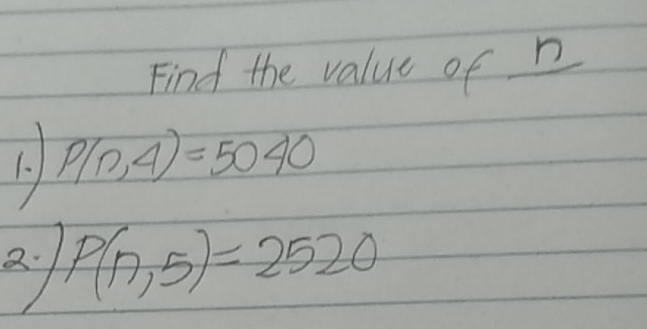 Find the value of n
1.) P(n,4)=5040
2.) P(n,5)=2520